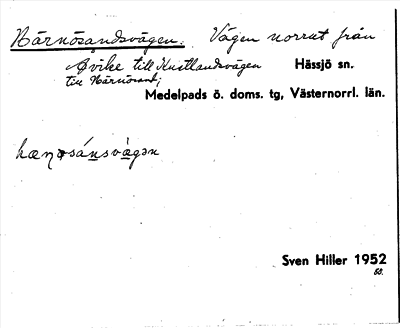 Härnösandsvägen. Vägen norrut från
Åvike till Kustlandsvägen Hässjö sn.
till Härnösand;
Medelpads ö. doms. tg, Västernorrl. län.
Sven Hiller 1952